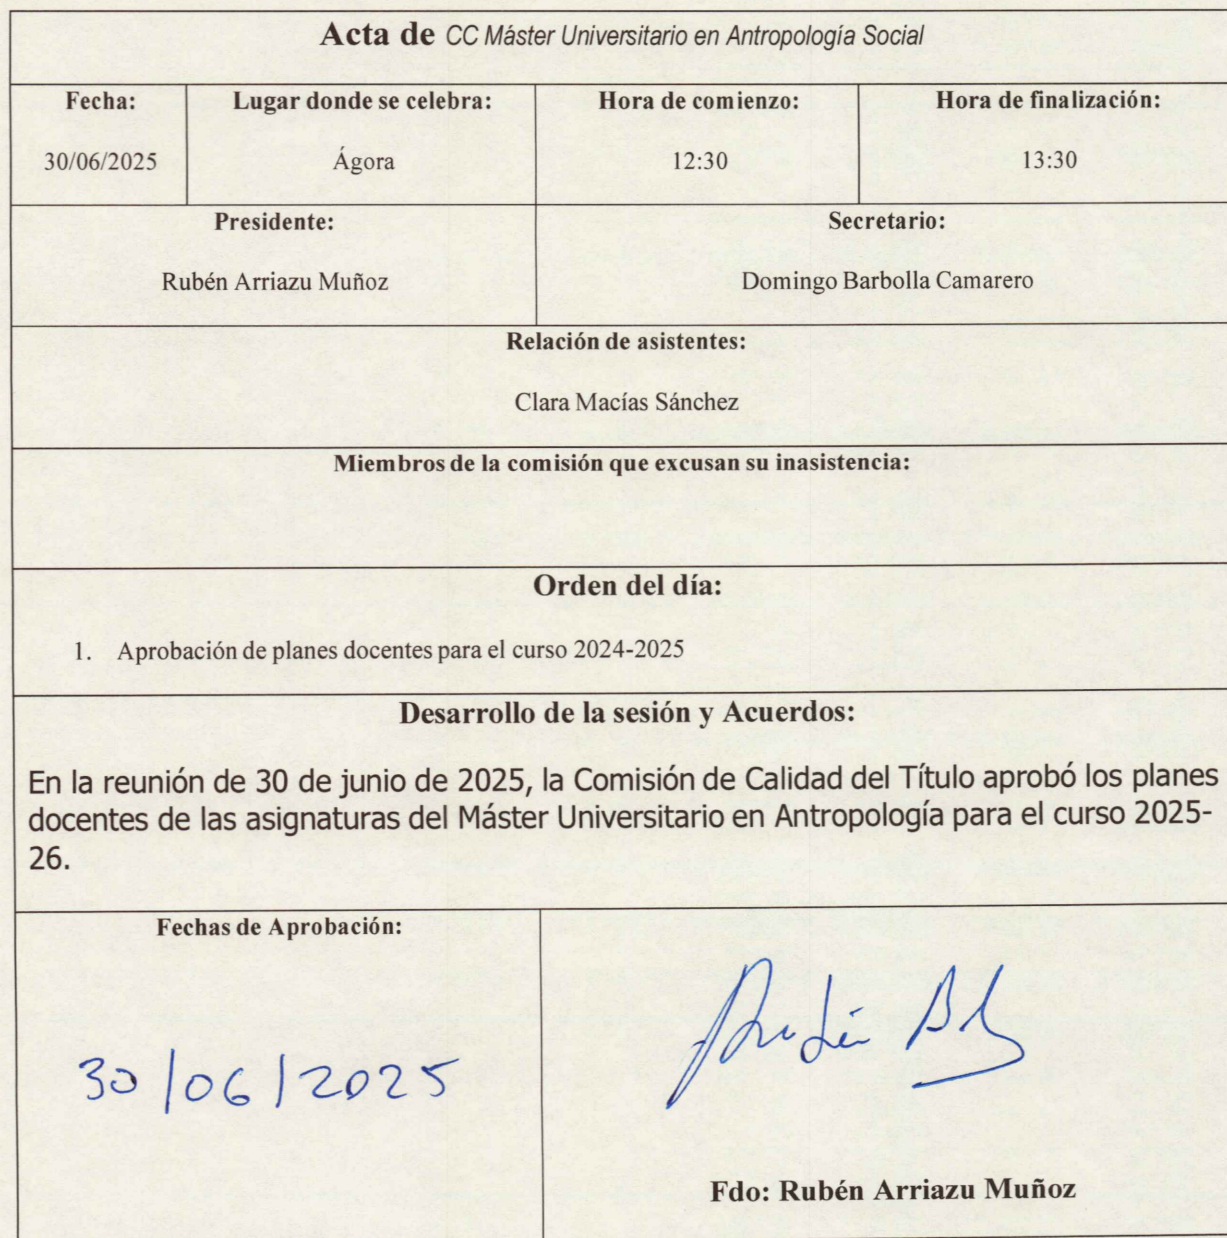 Acta de CC Máster Universitario en Antropología Social
Fecha: Lugar donde se celebra: Hora de comienzo: Hora de finalización:
30/06/2025 Ágora 12:30 13:30
Presidente: Secretario:
Rubén Arriazu Muñoz Domingo Barbolla Camarero
Relación de asistentes:
Clara Macías Sánchez
Miembros de la comisión que excusan su inasistencia:
Orden del día:
1. Aprobación de planes docentes para el curso 2024-2025
Desarrollo de la sesión y Acuerdos:
En la reunión de 30 de junio de 2025, la Comisión de Calidad del Título aprobó los planes
docentes de las asignaturas del Máster Universitario en Antropología para el curso 2025-
26.
Fechas de Aprobación:
30/06/2025
Fdo: Rubén Arriazu Muñoz